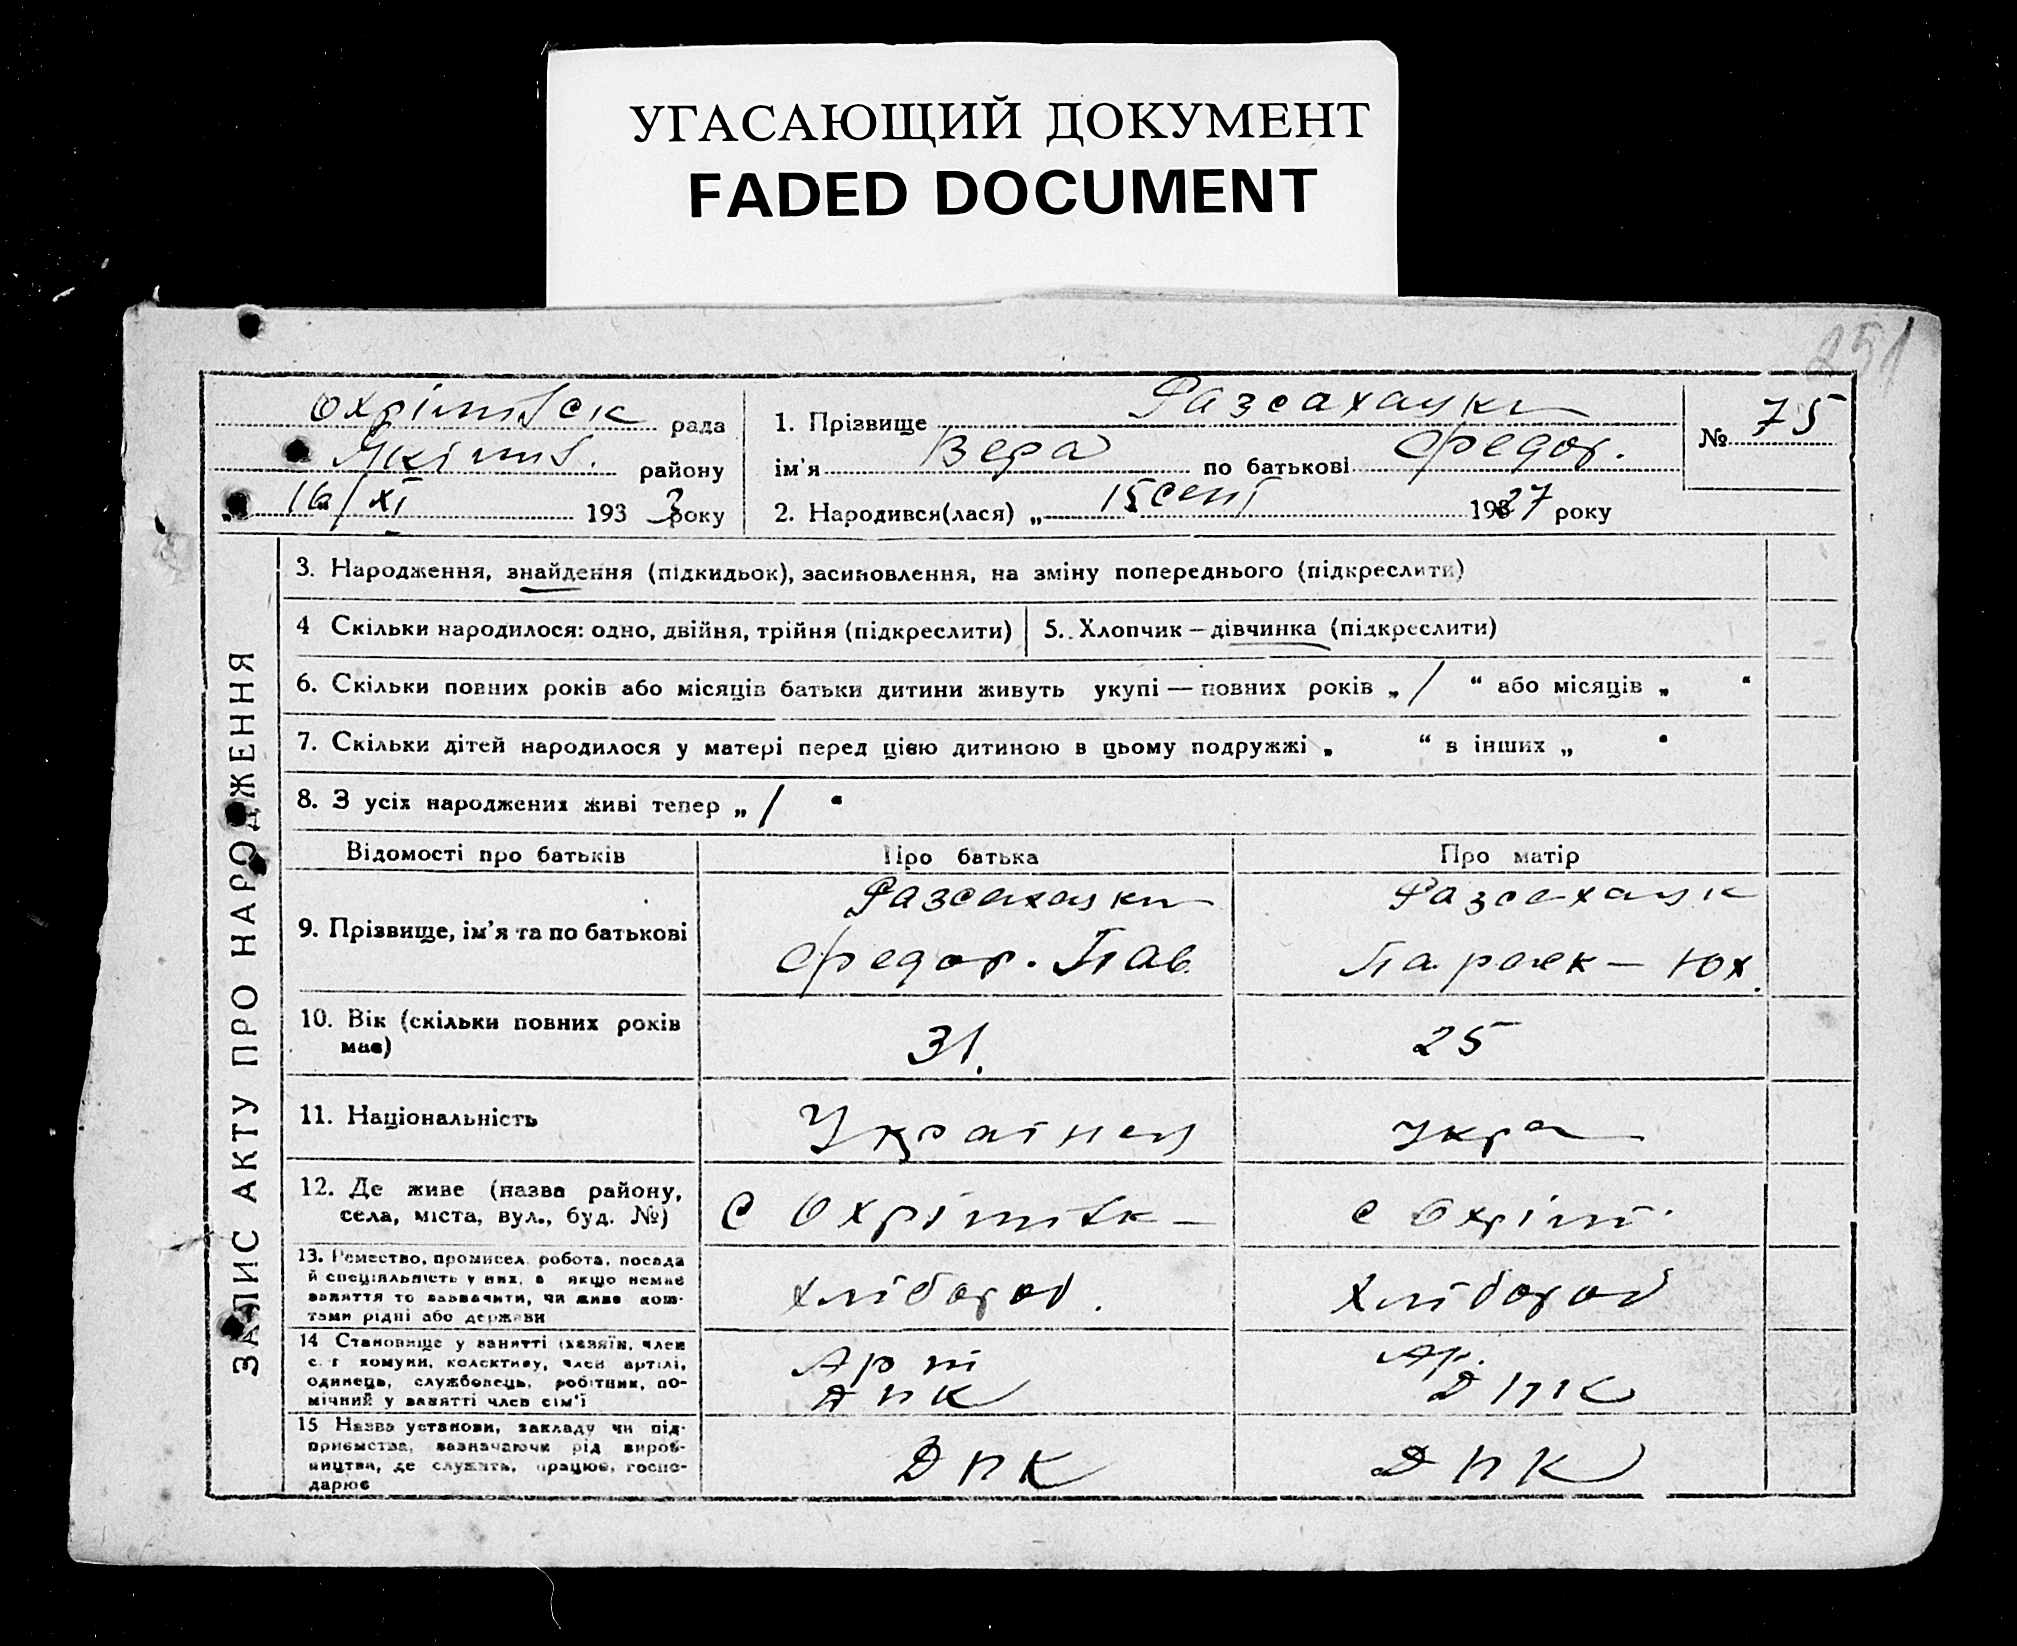 УГАСАЮЩИЙ ДОКУМЕНТ
FADED DOCUMENT
251
Охрімівск рада
Якімів. району
„16/XI 1933 року
1. Прізвище Разсахацки
ім'я Вера по батькові Федор.
2. Народився(лася) „15 сент 1927 року
№ 75
ЗАПИС АКТУ ПРО НАРОДЖЕННЯ
3. Народження, знайдення (підкидьок), засиновлення, на зміну попереднього (підкреслити)
4 Скільки народилося: одно, двійня, трійня (підкреслити)
5. Хлопчик — дівчинка (підкреслити)
6. Скільки повних років або місяців батьки дитини живуть укупі — повних років „ / “ або місяців „ “
7. Скільки дітей народилося у матері перед цією дитиною в цьому подружжі „ “ в інших „ “
8. З усіх народжених живі тепер „ / “
Відомості про батьків Про батька Про матір
9. Прізвище, ім'я та по батькові
Разсахацки
Федор. Пав
Разсахацк
Параск — Юх.
10. Вік (скільки повних років
має)
31.
25
11. Національність
Українец
Укра
12. Де живе (назва району,
села, міста, вул., буд. №)
С Охрімівк —
с Охрім.
13. Ремество, промисел, робота, посада
й спеціяльність у них, а якщо немає
заняття то зазначити, чи живе кош-
тами рідні або держави
хлібороб.
хлібороб
14 Становище у занятті (хазяїн, член
с. г комуни, колективу, член артілі,
одинець, службовець, робітник, по-
мічний у занятті член сім'ї
Арт
ДПК
Ар.
ДПК
15 Назва установи, закладу чи під-
приємства, зазначаючи рід вироб-
ництва, де служить, працює, госпо-
дарює
ДПК
ДПК